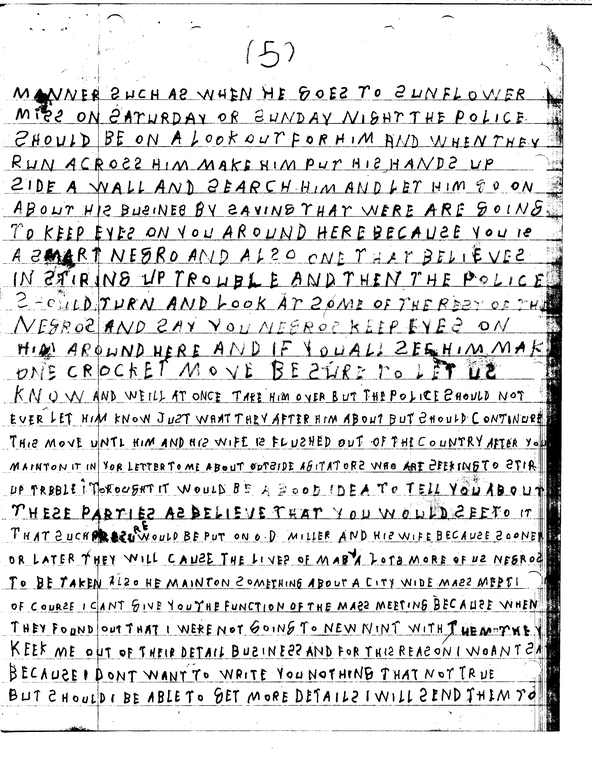 (5)
MANNER SUCH AS WHEN HE GOES TO SUNFLOWER
MISS ON SATURDAY OR SUNDAY NIGHT THE POLICE
SHOULD BE ON A LOOKOUT FOR HIM AND WHEN THEY
RUN ACROSS HIM MAKE HIM PUT HIS HANDS UP
SIDE A WALL AND SEARCH HIM AND LET HIM GO ON
ABOUT HIS BUSINES BY SAYING THAT WERE ARE GOING
TO KEEP EYES ON YOU AROUND HERE BECAUSE YOU IS
A SMART NEGRO AND ALSO ONE THAT BELIEVES
IN STIRING UP TROUBLE AND THEN THE POLICE
SHOULD TURN AND LOOK AT SOME OF THE REST OF THE
NEGROS AND SAY YOU NEGROS KEEP EYES ON
HIM AROUND HERE AND IF YOU ALL SEE HIM MAK
ONE CROCKET MOVE BE SURE TO LET US
KNOW AND WE ILL AT ONCE TAKE HIM OVER BUT THE POLICE SHOULD NOT
EVER LET HIM KNOW JUST WHAT THEY AFTER HIM ABOUT BUT SHOULD CONTINURE
THIS MOVE UNTL HIM AND HIS WIFE IS FLUSHED OUT OF THE COUNTRY AFTER YOU
MAINTON IT IN YOR LETTER TO ME ABOUT OUTSIDE AGITATORS WHO ARE SEEKING TO STIR
UP TRBBLE I THOUGHT IT WOULD BE A GOOD IDEA TO TELL YOU ABOUT
THESE PARTIES AS BELIEVE THAT YOU WOULD SEE TO IT
THAT SUCH WOULD BE PUT ON O.D MILLER AND HIS WIFE BECAUSE SOONER
OR LATER THEY WILL CAUSE THE LIVES OF LOTS MORE OF US NEGROS
TO BE TAKEN ALSO HE MAINTON SOMETHING ABOUT A CITY WIDE MASS MEETI
OF COURSE I CANT GIVE YOU THE FUNCTION OF THE MASS MEETING BECAUSE WHEN
THEY FOUND OUT THAT I WERE NOT GOING TO NEW NINT WITH THEM THEY
KEEK ME OUT OF THEIR DETAIL BUSINESS AND FOR THIS REASON I WOANT SA
BECAUSE I DONT WANT TO WRITE YOU NOTHING THAT NOT TRUE
BUT SHOULD I BE ABLE TO GET MORE DETAILS I WILL SEND THEM TO